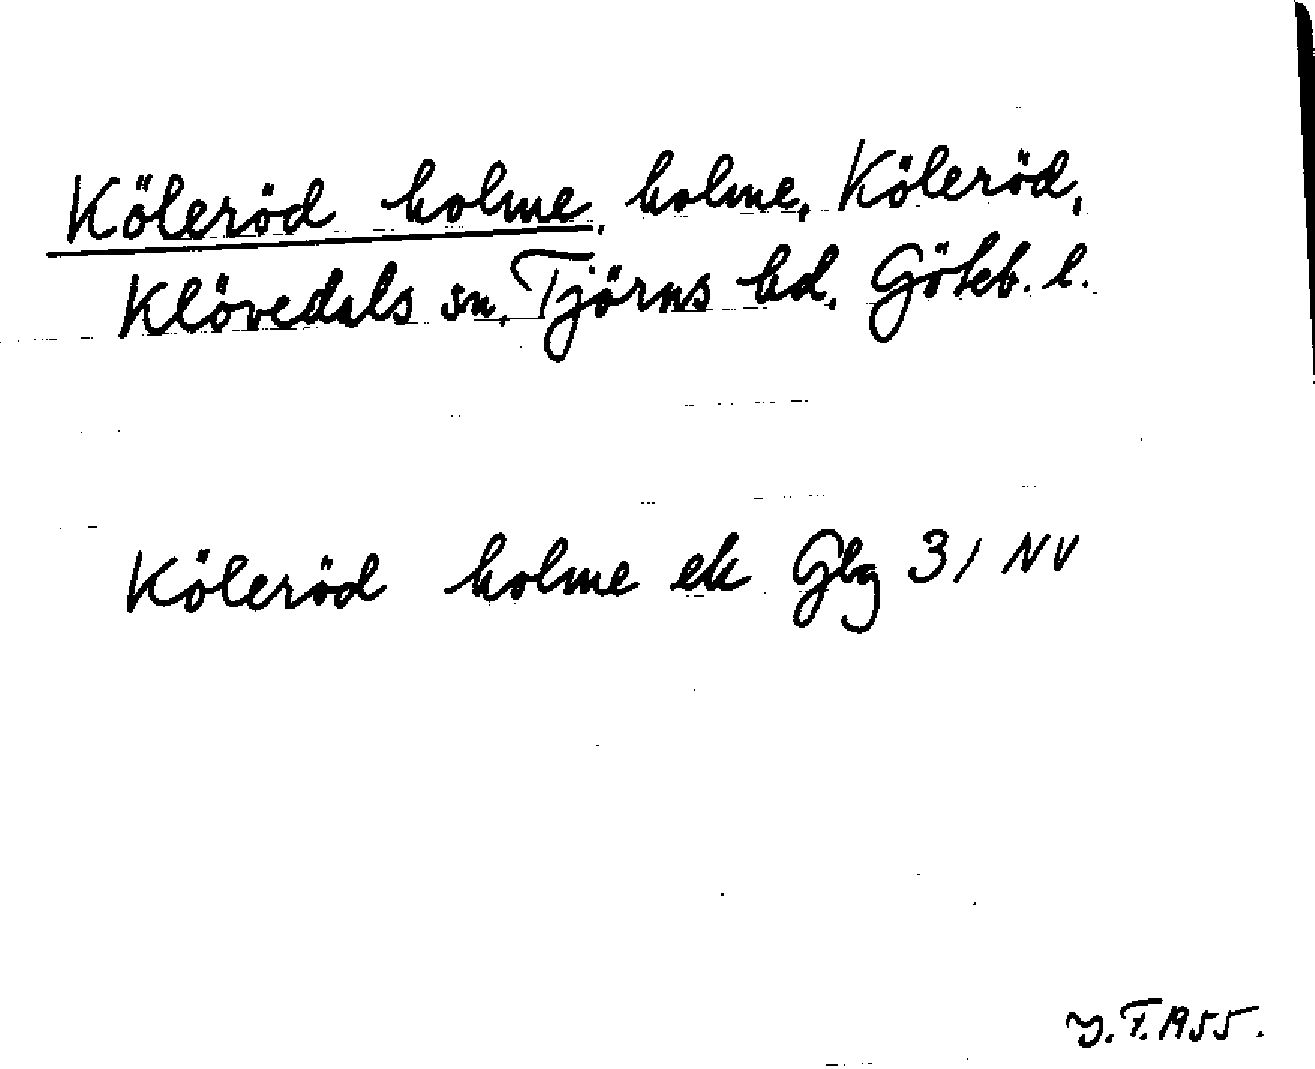 Köleröd holme, holme, Köleröd,
Klövedals sn, Tjörns hd, Göteb. l.
Köleröd holme ek Gbg 31 NV
Y. T. 1955.